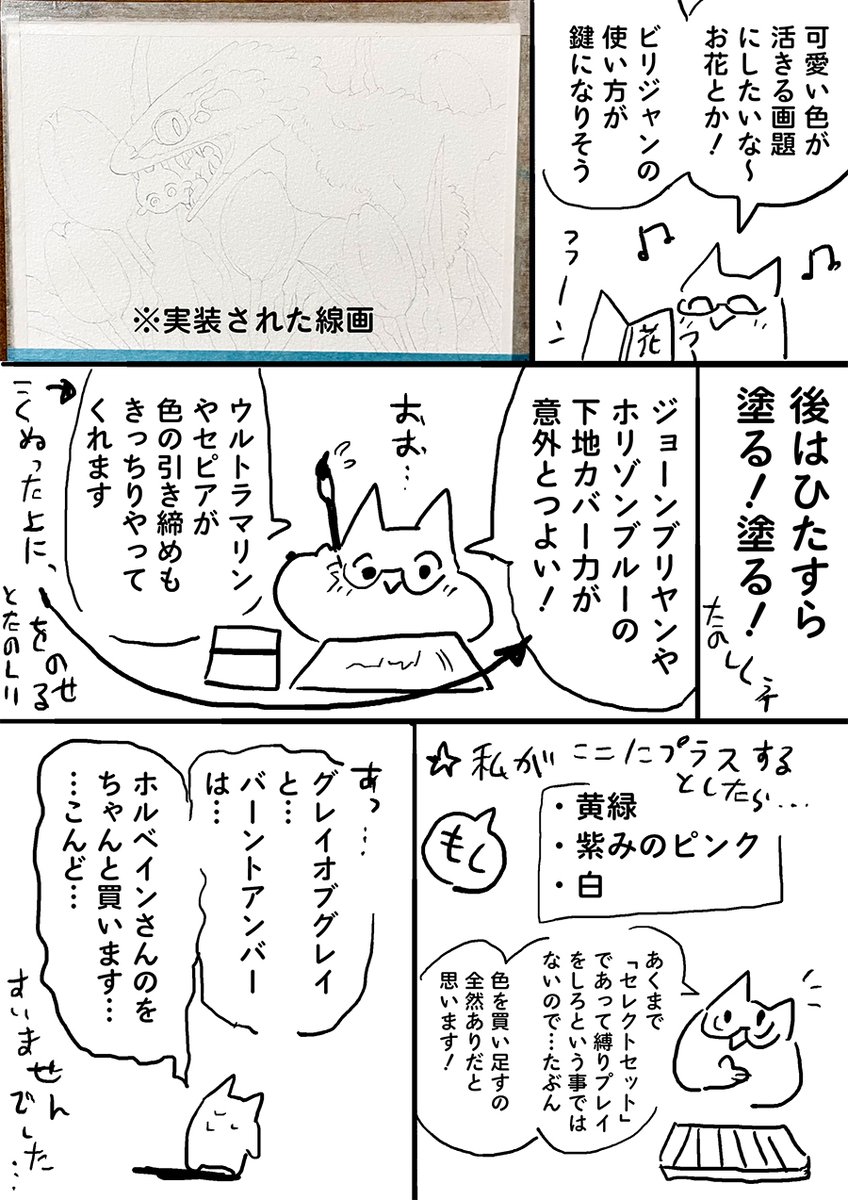 可愛い色が
活きる画題
にしたいな〜
お花とか!
ビリジャンの
使い方が
鍵になりそう
フフーン
花
※実装された線画
後はひたすら
塗る!塗る!
たのしくデ
ジョーンブリヤンや
ホリゾンブルーの
下地カバー力が
意外とつよい!
おお…
ウルトラマリン
やセピアが
色の引き締めも
きっちりやって
くれます
こくぬった上に、
をのせる
とたのしい
☆私がここにプラスする
としたら…
・黄緑
・紫みのピンク
・白
もく
あくまで
「セレクトセット」
であって縛りプレイ
をしろという事では
ないので…たぶん
色を買い足すの
全然ありだと
思います!
あっ…
グレイオブグレイ
と…
バーントアンバー
は…
ホルベインさんのを
ちゃんと買います…
…こんど…
すいません
でした…